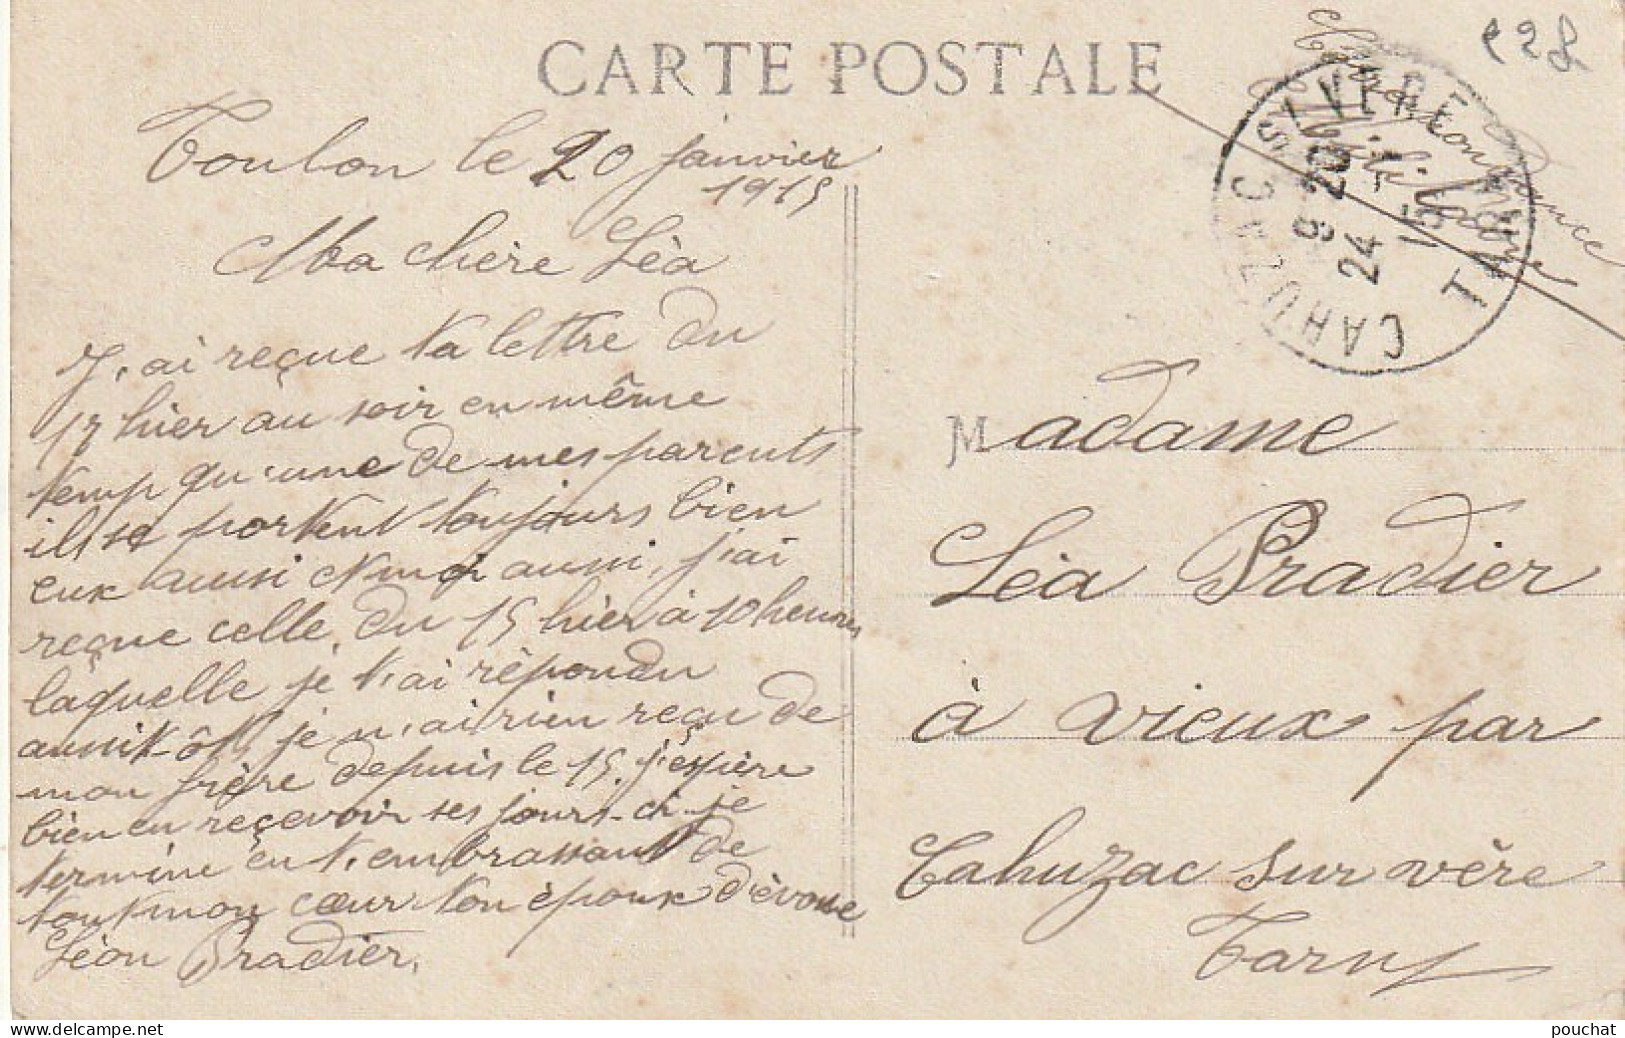 CARTE POSTALE
228
Correspondance
Militaire
CAHUZAC S/ VERE
TARN
8 20
24 -1
15
Toulon le 20 janvier
1915
Ma chère Léa
J'ai reçue ta lettre du
17 hier au soir en même
temp qu'une de mes parents
il se portent toujours bien
eux aussi et moi aussi, j'ai
reçue celle du 15 hier à 10 heures
laquelle je t'ai répondu
aussit-ôt, je n'ai rien reçu de
mon frère depuis le 15. j'espère
bien en reçevoir ses jours-ci je
termine en t'embrassant de
tout mon cœur ton époux dévoué
Léon Pradier.
Madame
Léa Pradier
à vieux par
Cahuzac sur vère
Tarn
pouchat